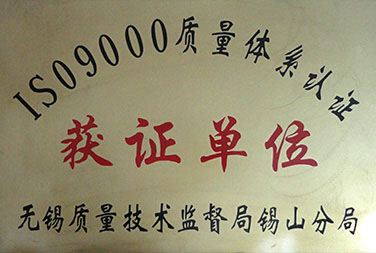 ISO9000质量体系认证
获证单位
无锡质量技术监督局锡山分局